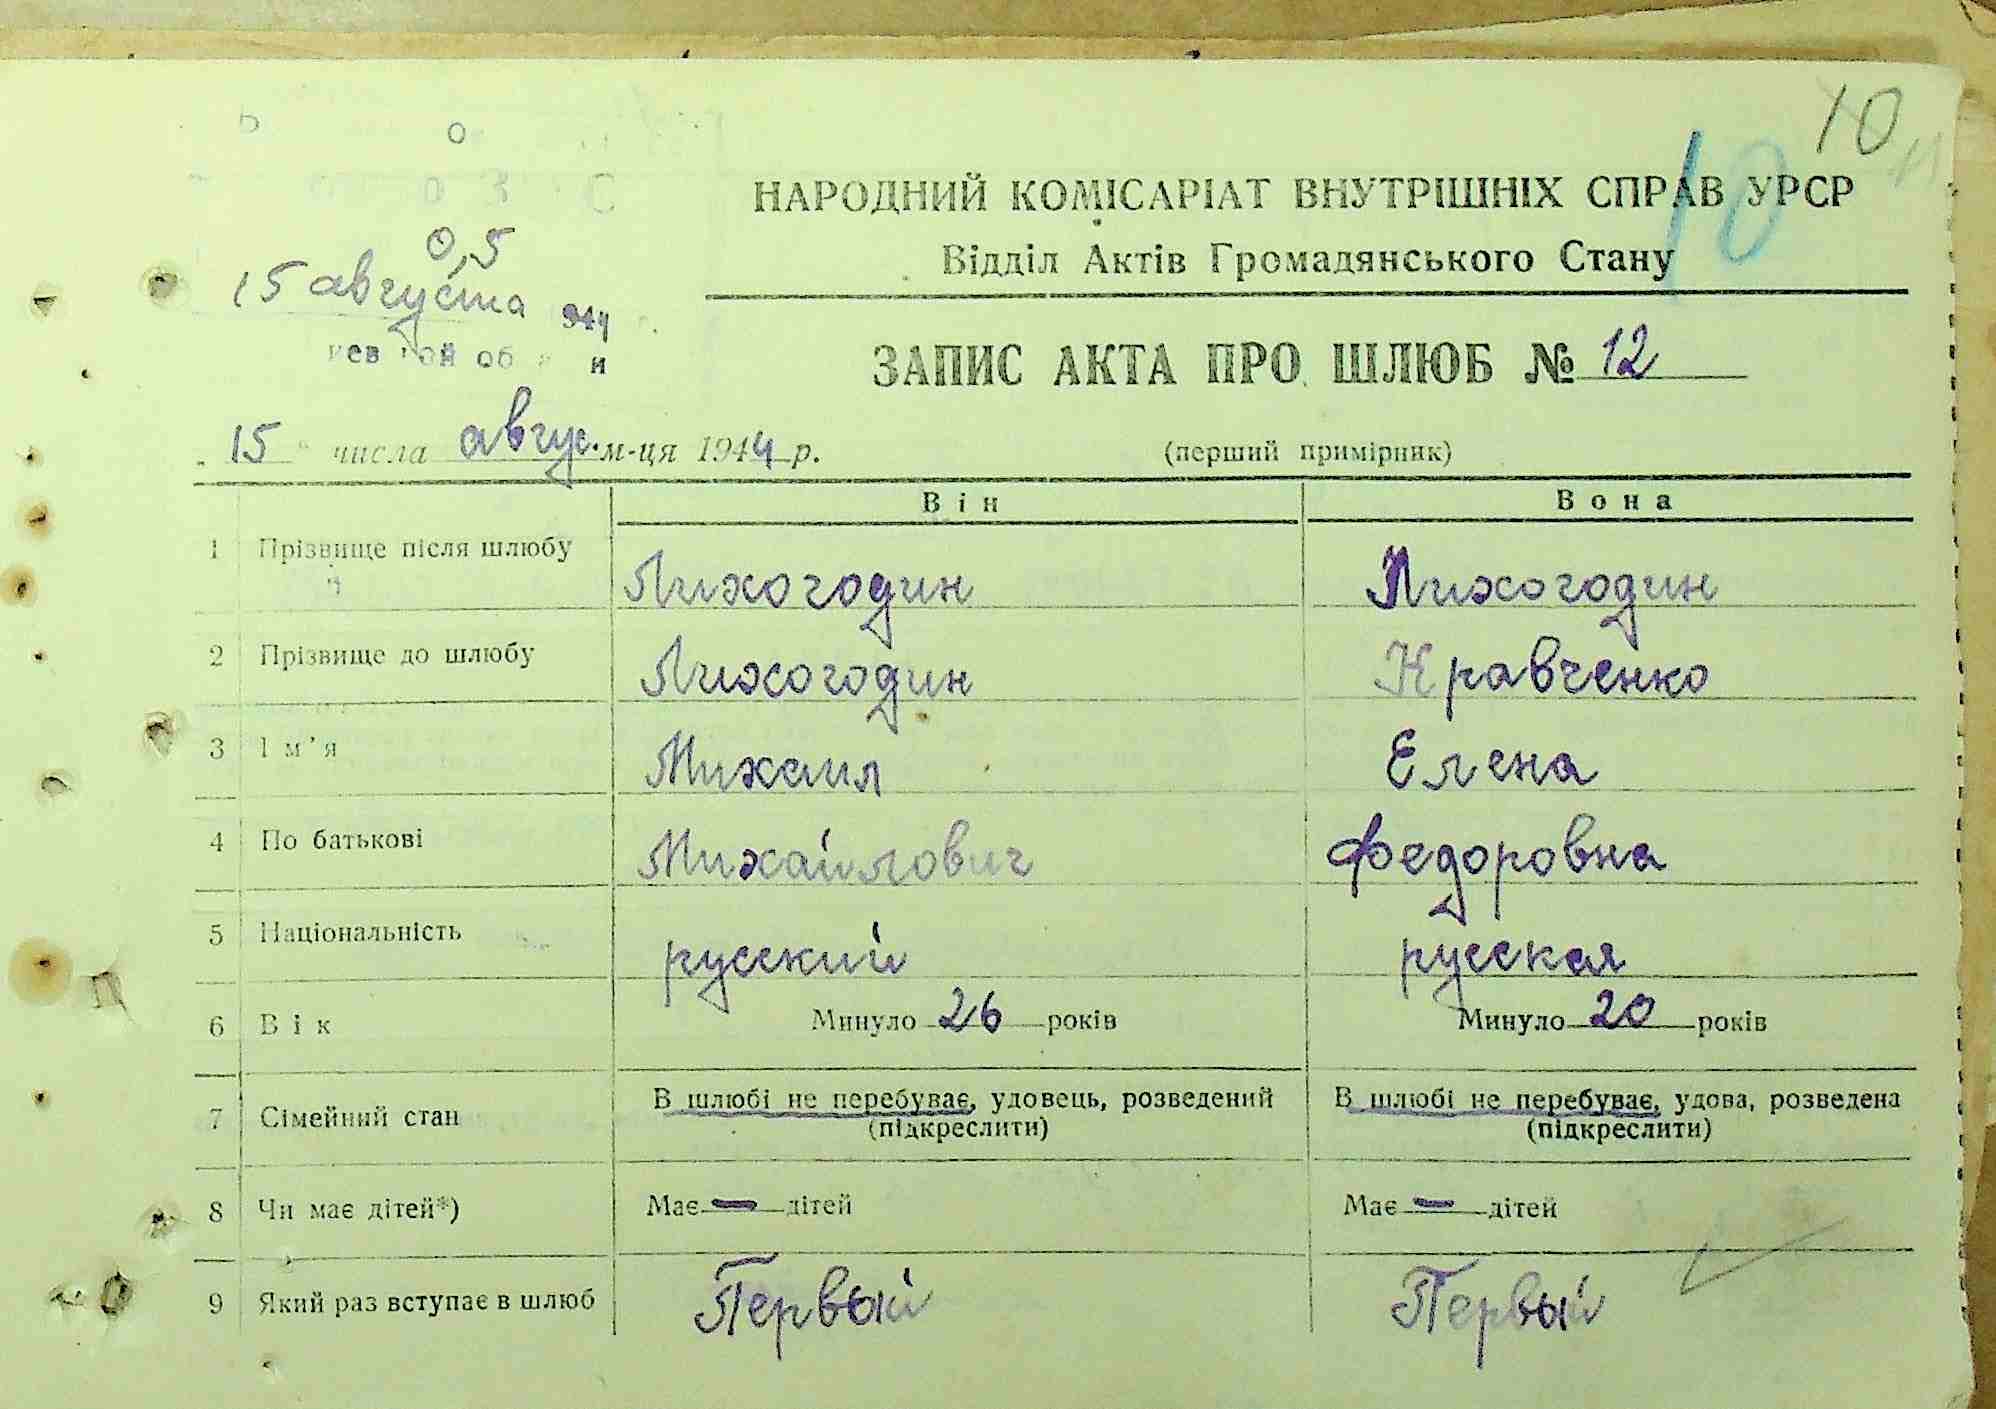 10
10
НАРОДНИЙ КОМІСАРІАТ ВНУТРІШНІХ СПРАВ УРСР
Відділ Актів Громадянського Стану
0,5
15 августа 944
ЗАПИС АКТА ПРО ШЛЮБ № 12
15 числа авгус. м-ця 1944 р.
(перший примірник)
Він Вона
1 Прізвище після шлюбу Лихогодин Лихогодин
2 Прізвище до шлюбу Лихогодин Кравченко
3 Ім'я Михаил Елена
4 По батькові Михайлович Федоровна
5 Національність русский русская
6 Вік Минуло 26 років Минуло 20 років
7 Сімейний стан В шлюбі не перебуває, удовець, розведений В шлюбі не перебуває, удова, розведена
(підкреслити) (підкреслити)
8 Чи має дітей*) Має — дітей Має — дітей
9 Який раз вступає в шлюб Первый Первый